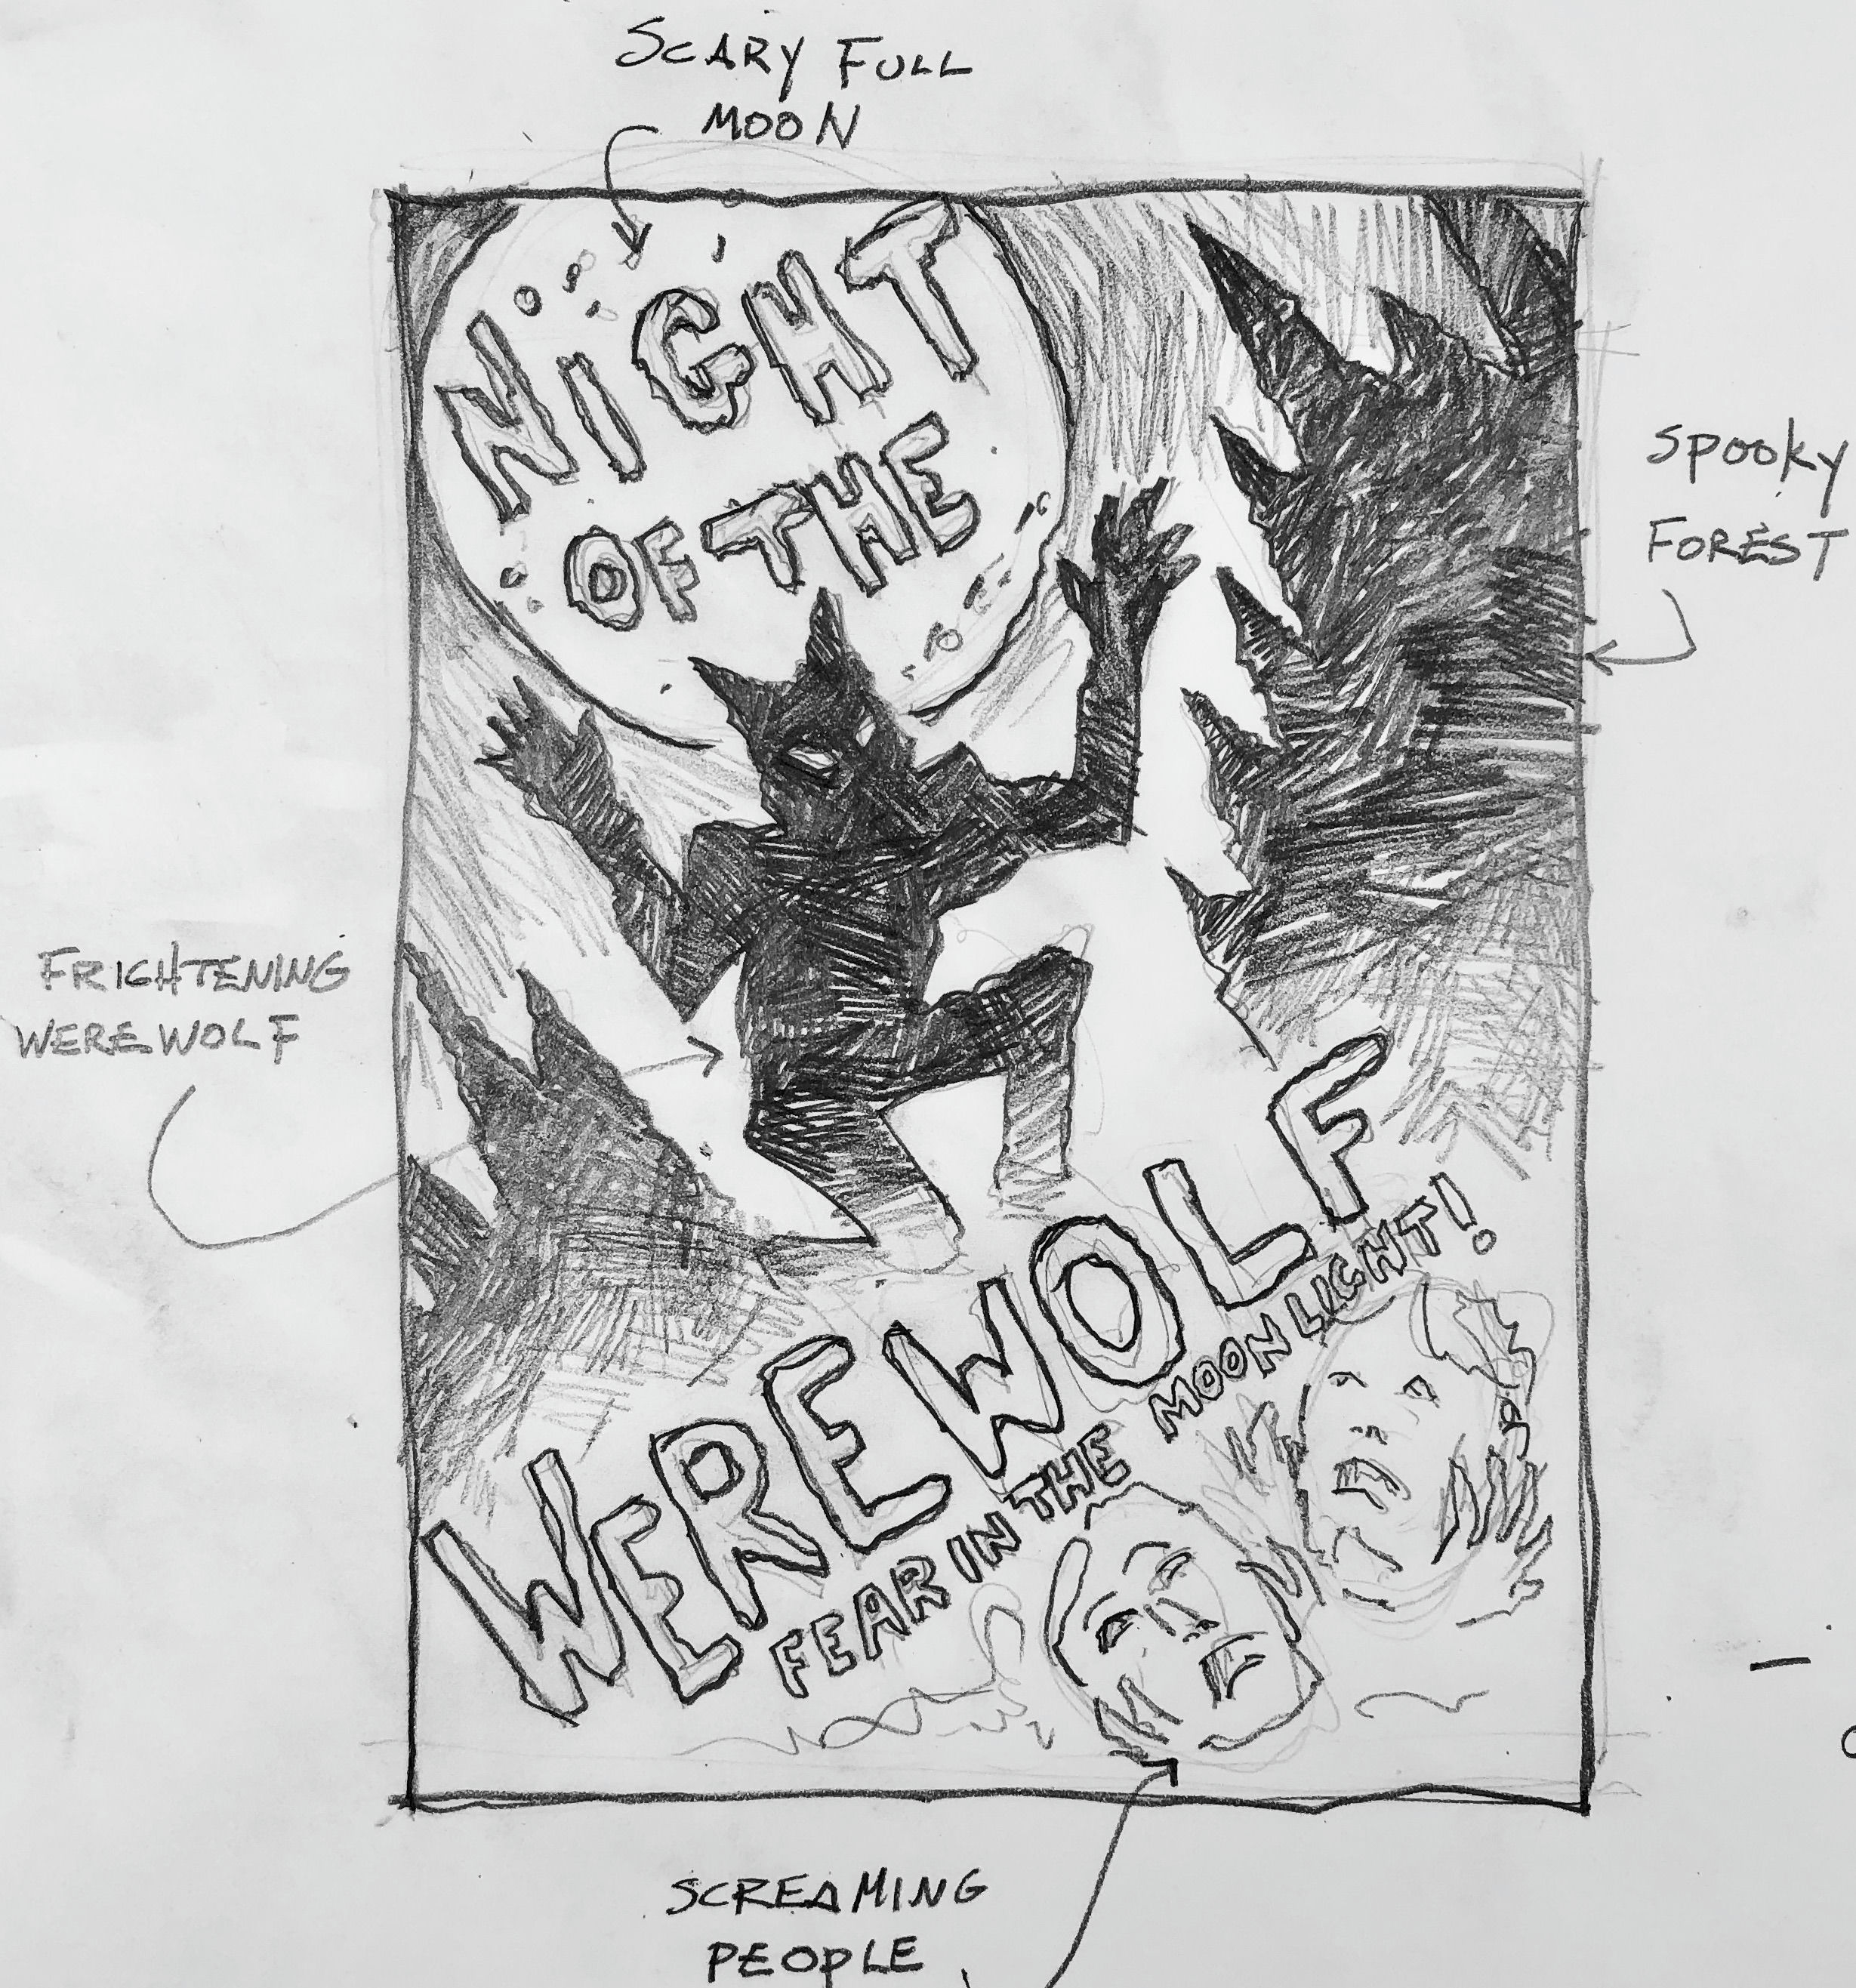 SCARY FULL
MOON
NIGHT
OF THE
SPOOKY
FOREST
FRIGHTENING
WEREWOLF
WEREWOLF
FEAR IN THE MOONLIGHT!
SCREAMING
PEOPLE